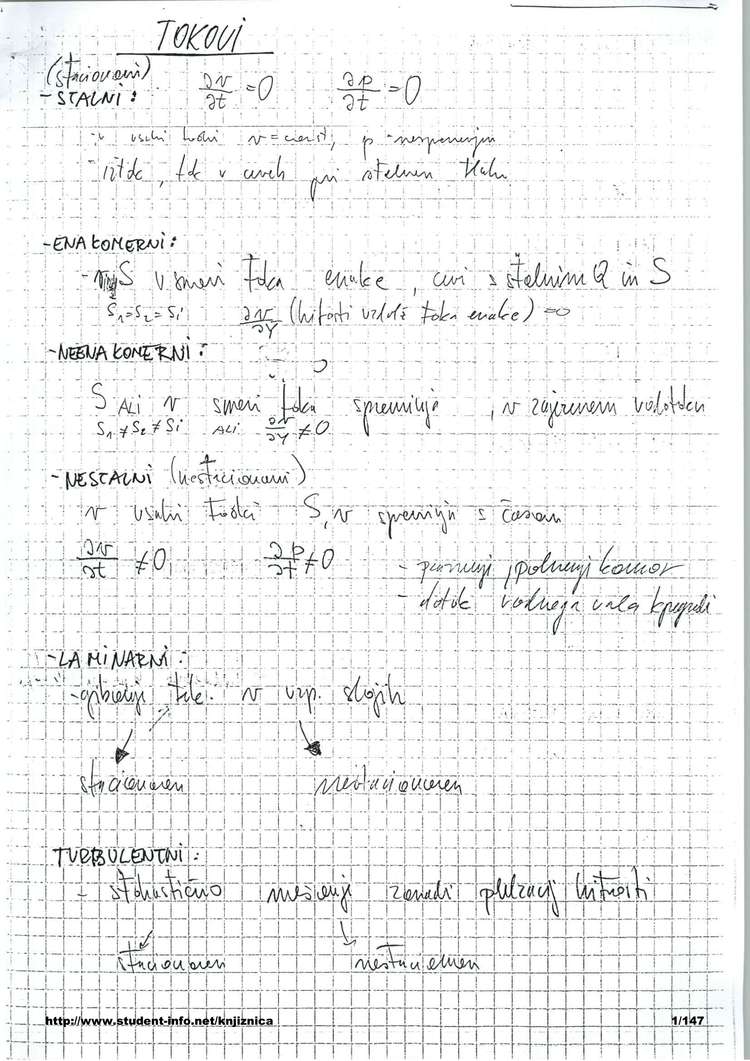 TOKOVI
(stacionarni)
- STALNI: ∂v/∂t = 0 ∂p/∂t = 0
v vsaki točki v = const, p - nespremenjen
iztok, tok v ceveh pri stalnem tlaku
- ENAKOMERNI:
- S v smeri toka enake, cevi s stalnim Q in S
S1 = S2 = Si ∂v/∂y (hitrosti vzdolž toka enake) = 0
- NEENAKOMERNI:
S ALI v smeri toka spreminja, v zajezenem vodotoku
S1 ≠ S2 ≠ Si ALI ∂v/∂y ≠ 0
- NESTALNI (nestacionarni)
v vsaki točki S, v spreminja s časom
∂v/∂t ≠ 0, ∂p/∂t ≠ 0 - praznenje, polnenje komor
- dotok vodnega vala k pregradi
- LAMINARNI:
- gibanje tek. v vzp. slojih
stacionaren nestacionaren
TURBULENTNI:
- stohastično mešanje zaradi pulzacij hitrosti
stacionaren nestacionaren
http://www.student-info.net/knjiznica 1/147